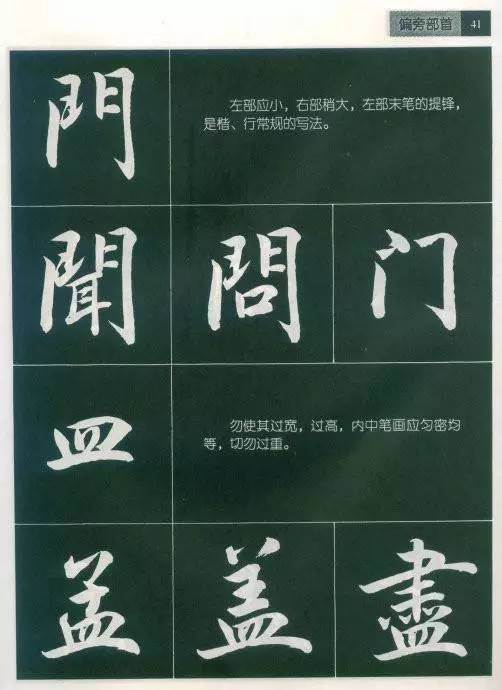 偏旁部首 41
門
左部应小，右部稍大，左部末笔的提锋，
是楷、行常规的写法。
聞 問 门
皿
勿使其过宽，过高，内中笔画应匀密均
等，切勿过重。
益 盖 盡